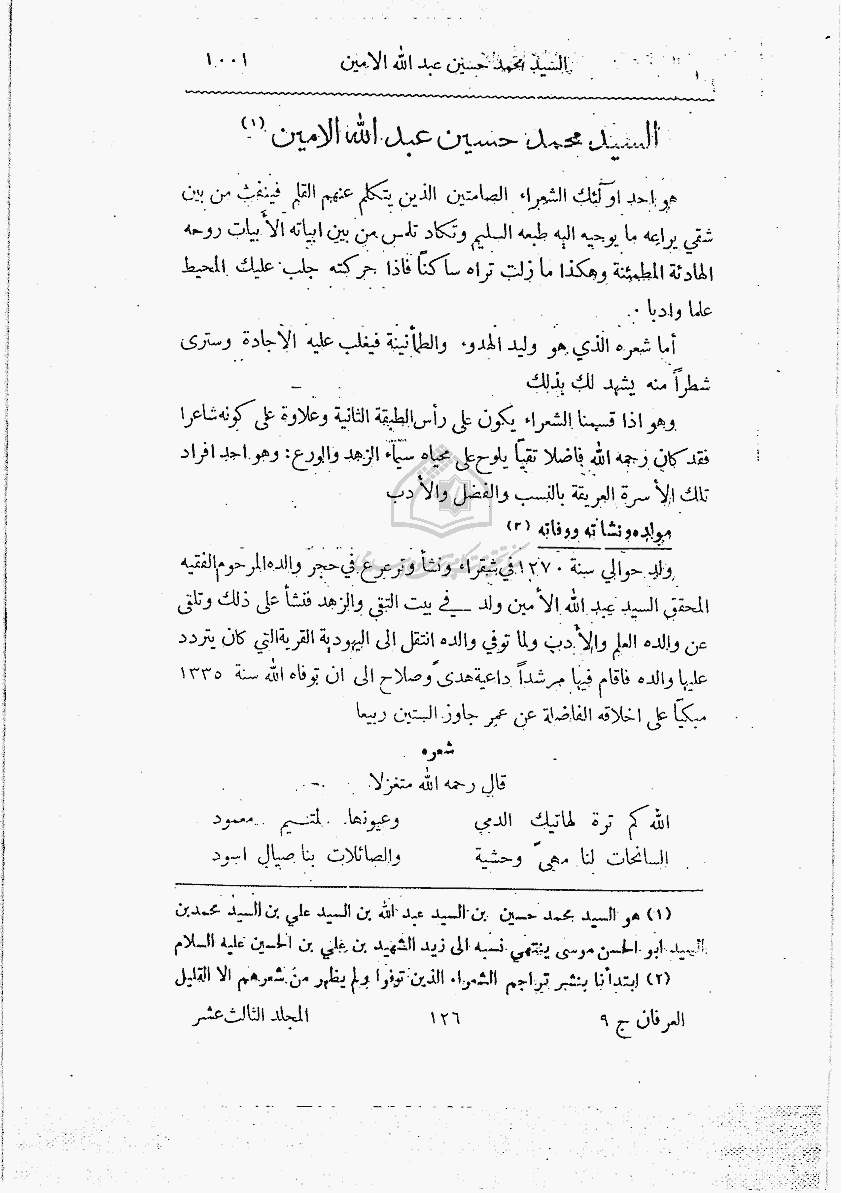 السيد محمد حسين عبد الله الامين ١٠٠١
السيد محمد حسين عبد الله الامين (١)
هو احد اولئك الشعراء الصامتين الذين يتكلم عنهم القلم فينفث من بين
شقي يراعه ما يوحيه اليه طبعه السليم وتكاد تلمس من بين ابياته الأبيات روحه
الهادئة المطمئنة وهكذا ما زلت تراه ساكناً فاذا حركته جلب عليك المحيط
علما وادبا .
أما شعره الذي هو وليد الهدوء والطأنينة فيغلب عليه الاجادة وسترى
شطراً منه يشهد لك بذلك
وهو اذا قسمنا الشعراء يكون على رأس الطبقة الثانية وعلاوة على كونه شاعرا
فقد كان رحمه الله فاضلا تقياً يلوح على محياه سيماء الزهد والورع : وهو احد افراد
تلك الأسرة العريقة بالنسب والفضل والأدب
مولده ونشاته ووفاته (٢)
ولد حوالي سنة ١٢٧٠ في شقراء ونشأ وترعرع في حجر والده المرحوم الفقيه
المحقق السيد عبد الله الأمين ولد في بيت التقي والزهد فنشأ على ذلك وتلقى
عن والده العلم والأدب ولما توفي والده انتقل الى اليهودية القرية التي كان يتردد
عليها والده فاقام فيها مرشداً داعية هدى وصلاح الى ان توفاه الله سنة ١٣٣٥
مبكياً على اخلاقه الفاضلة عن عمر جاوز الستين ربيعا
شعره
قال رحمه الله متغزلا
الله كم ترة لهاتيك الدمى وعيونها لمتيم معمود
السانحات لنا مهىً وحشية والصائلات بنا صيال اسود
(١) هو السيد محمد حسين بن السيد عبد الله بن السيد علي بن السيد محمد بن
السيد ابو الحسن موسى ينتهي نسبه الى زيد الشهيد بن علي بن الحسين عليه السلام
(٢) ابتدأنا بنشر تراجم الشعراء الذين توفوا ولم يظهر من شعرهم الا القليل
العرفان ج ٩ ١٢٦ المجلد الثالث عشر